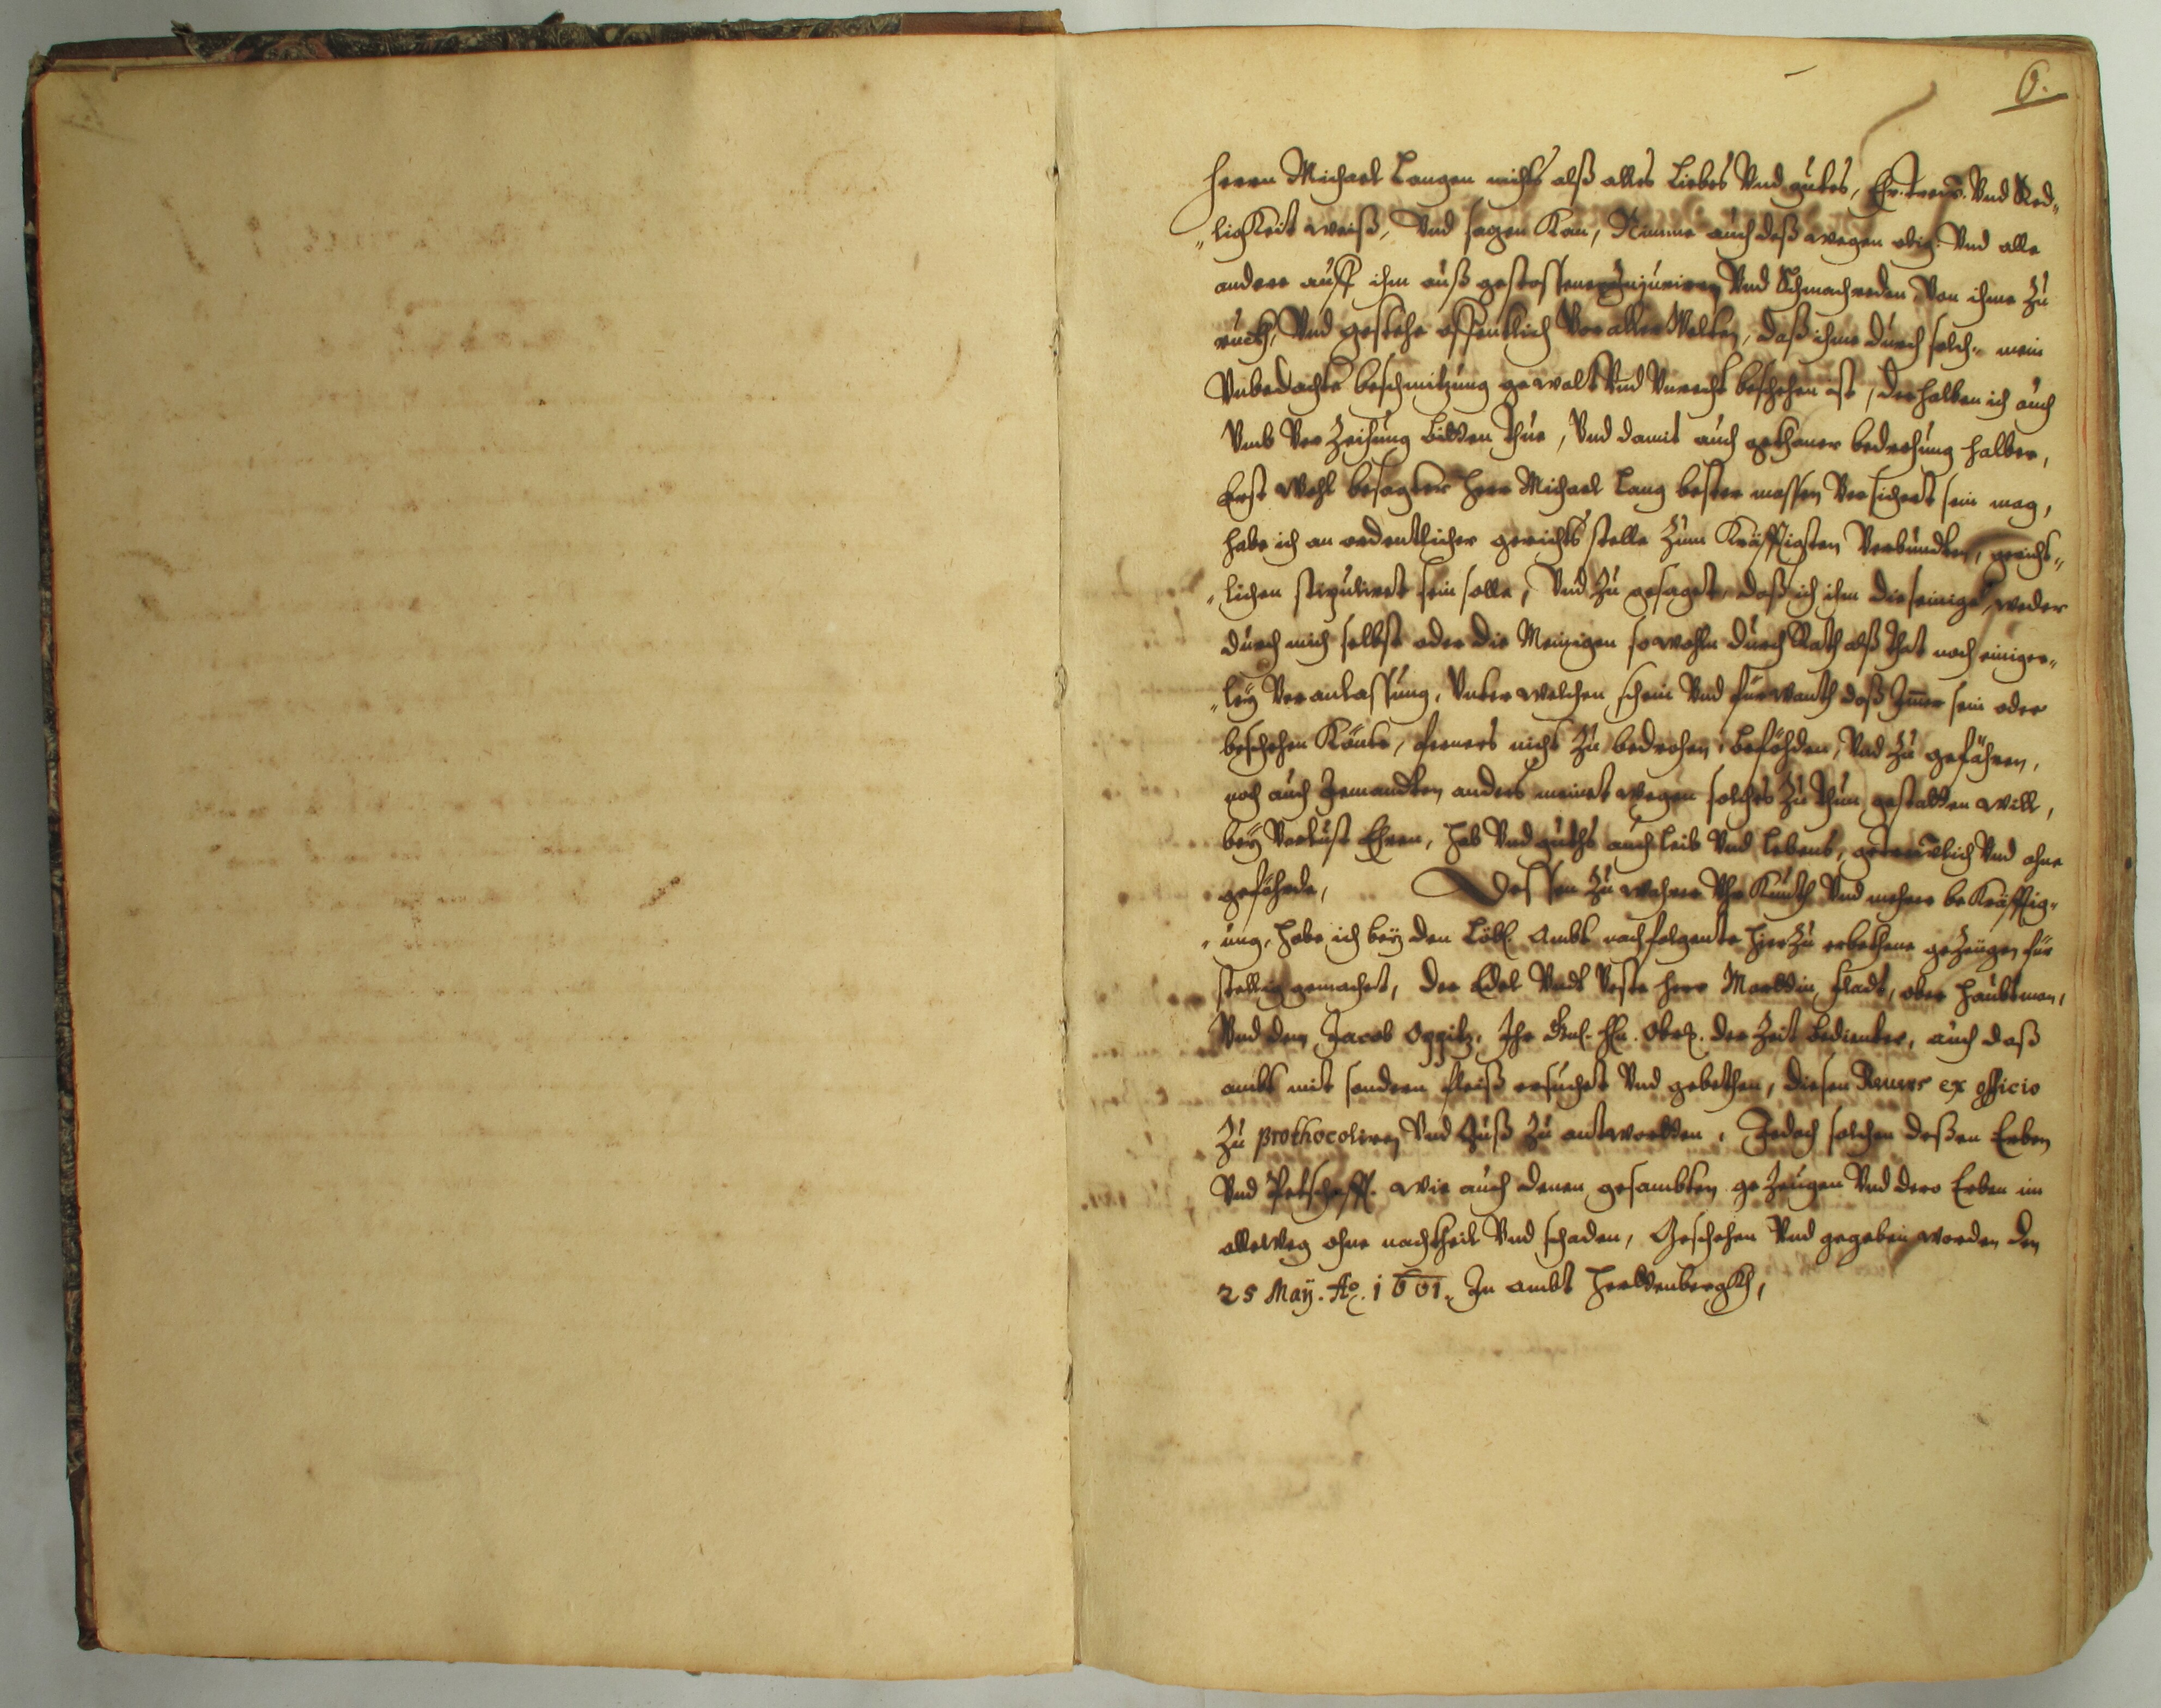 6.
Herrn Michael Langen nichts alß alles Liebes Vnd gutes, Ehr. Vnd Red„
„ligkeit weiß, Vnd sagen Kan, Nimme auch deß wegen obig. Vnd alle
andere auff ihn auß gestossene Injurien Vnd Schmachreden Von ihme Zu
ruckh, Vnd gestehe offentlich Vor aller Welten, daß ihme durch solch. mein
Vnbedachte beschmitzung gewalt Vnd Vnrecht beschehen ist, derhalben ich auch
Vmb Ver Zeihung bitten Thue, Vnd damit auch gethaner bedrohung halber,
Erst Wohl besagter Herr Michael Lang bester massen Versichert sein mag,
habe ich an ordentlicher gerichts stelle Zum Kräfftigsten Verbundten, gericht„
„lichen stipuliret sein solle, Vnd Zu gesaget, daß ich ihm die seinige, weder
durch mich selbst oder die Meinigen sowohln durch Rath alß That noch einiger„
„leÿ Veranlassung, Vnter welchen schein Vnd fürwanth daß Jmer sein oder
beschehen Könte, ferners nicht Zu bedrohen, beföhden, Vnd Zu gefähren,
noch auch Jemandten anders meinet wegen solches Zu Thun gestatten will,
beÿ Verlust Ehren, Hab Vnd guths auch leib Vnd Lebens, getreulich Vnd ohne
gefährde, Dessen Zu wahrer Vhr Kundth Vnd mehrer be Kräfftig„
„ung, habe ich beÿ den Löbl. Ambt nachfolgente hier Zu erbethene ge Zeugen für
stellig gemachet, der Edel Vndt Veste Herr Marttin fladt, ober Haubtman,
Vnd den Jacob Oppitz, Ihr der Zeit bedienter, auch daß
ambt mit sondern fleiß ersuchet Vnd gebethen, diesen Revers ex officio
Zu prothocoliren Vnd Auß Zu antwortten, Jedoch solchen deßen Erben
Vnd Petschafft. wie auch denen gesambten ge Zeugen Vnd dero Erben im
alleweg ohne nachtheil Vnd schaden, Geschehen Vnd gegeben worden den
25 Maÿ. Ao. 1661. In ambt Herttenbergkh,